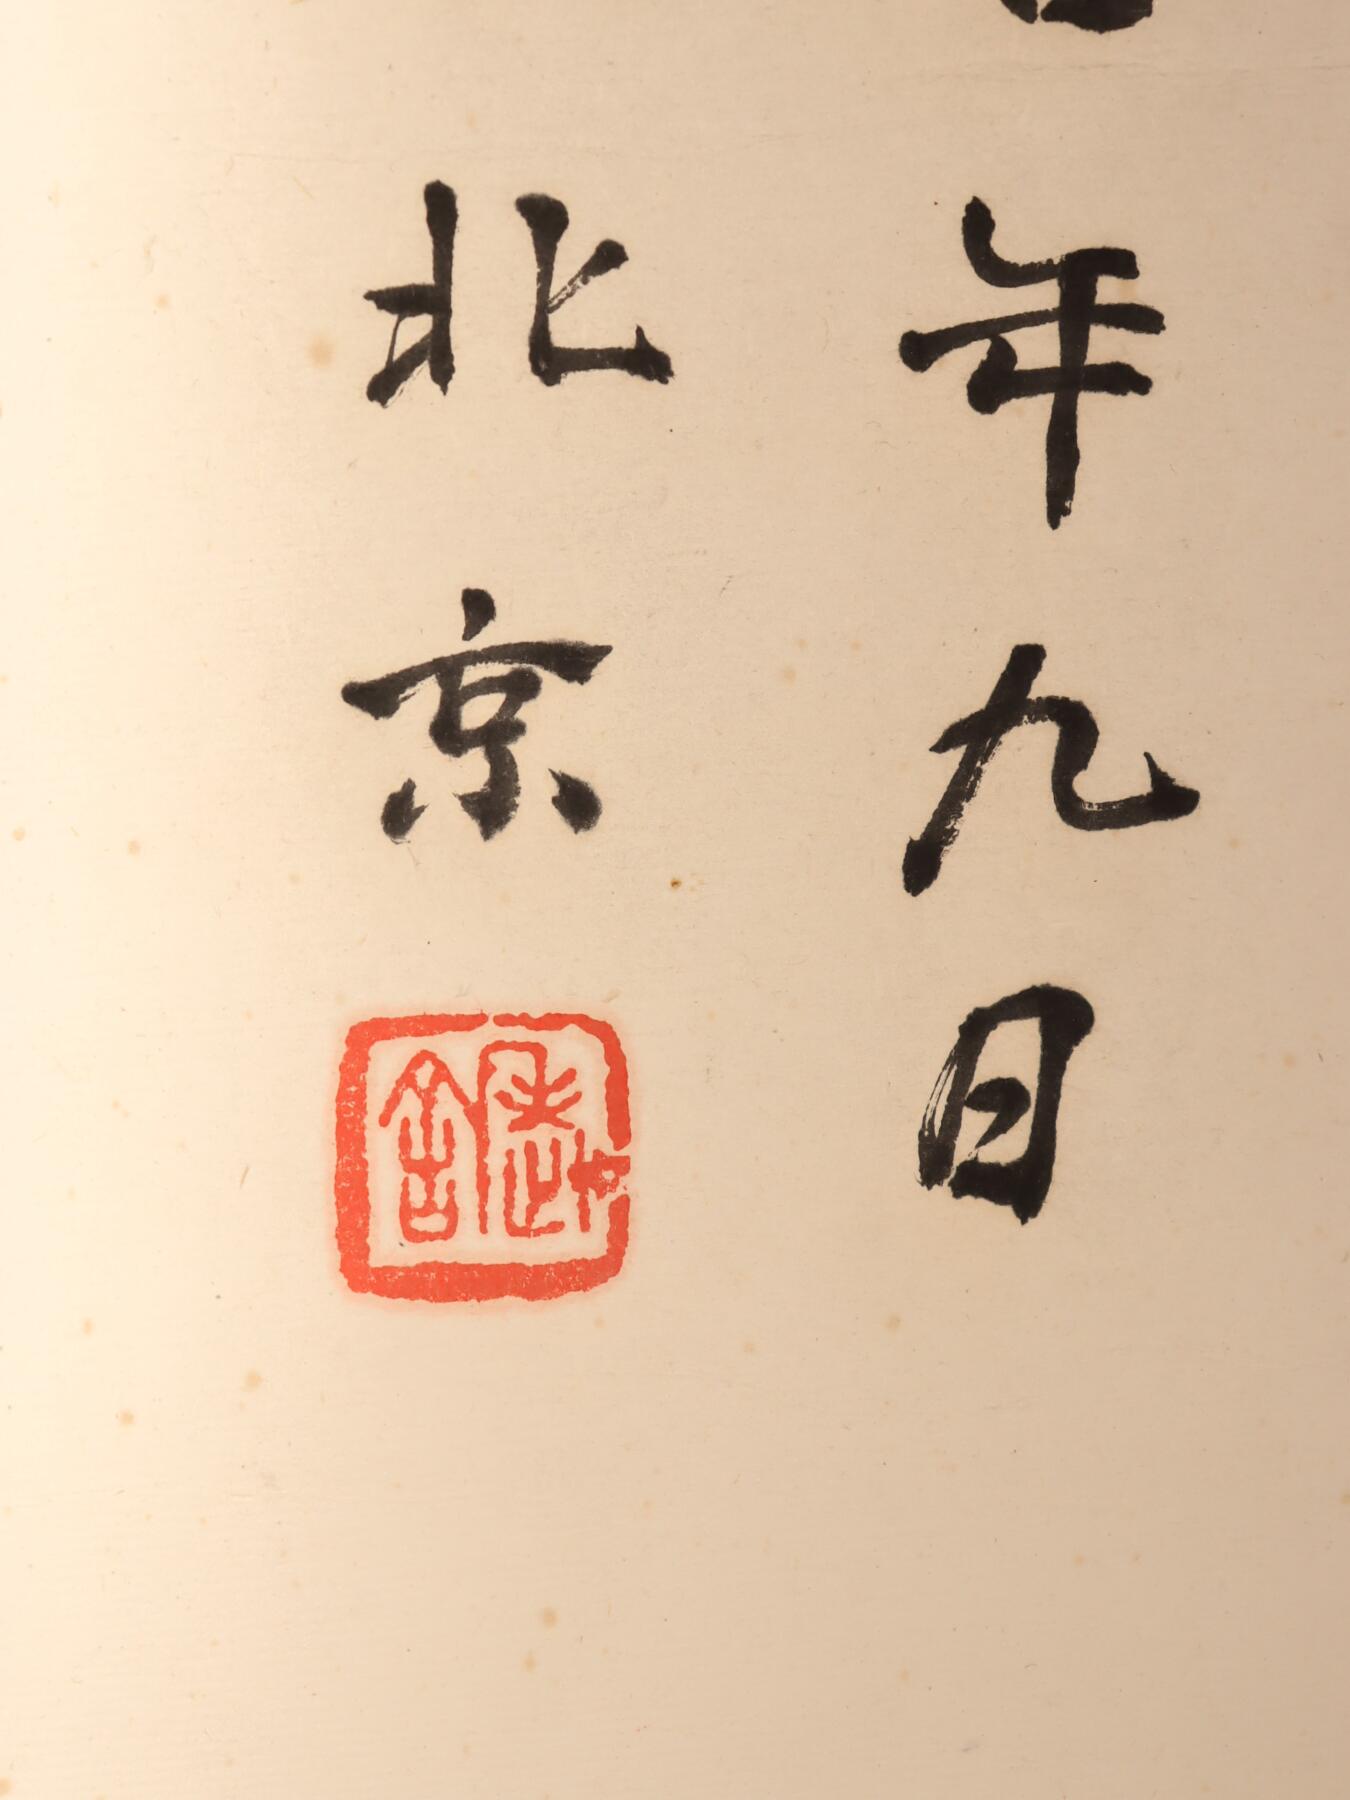 年九日
北京